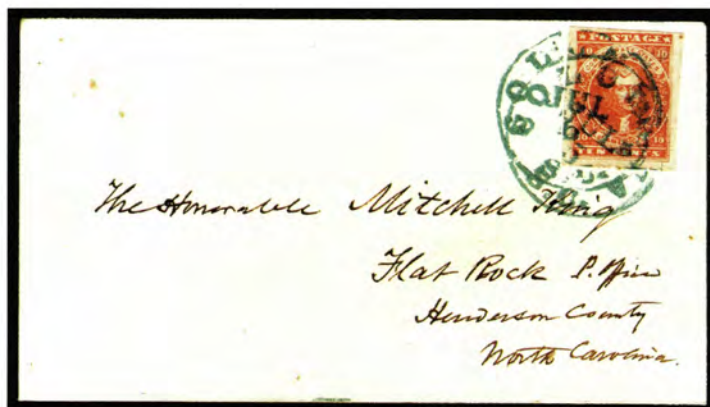 POSTAGE
TEN CENTS
The Honorable Mitchell King
Flat Rock P. Office
Henderson County
North Carolina.